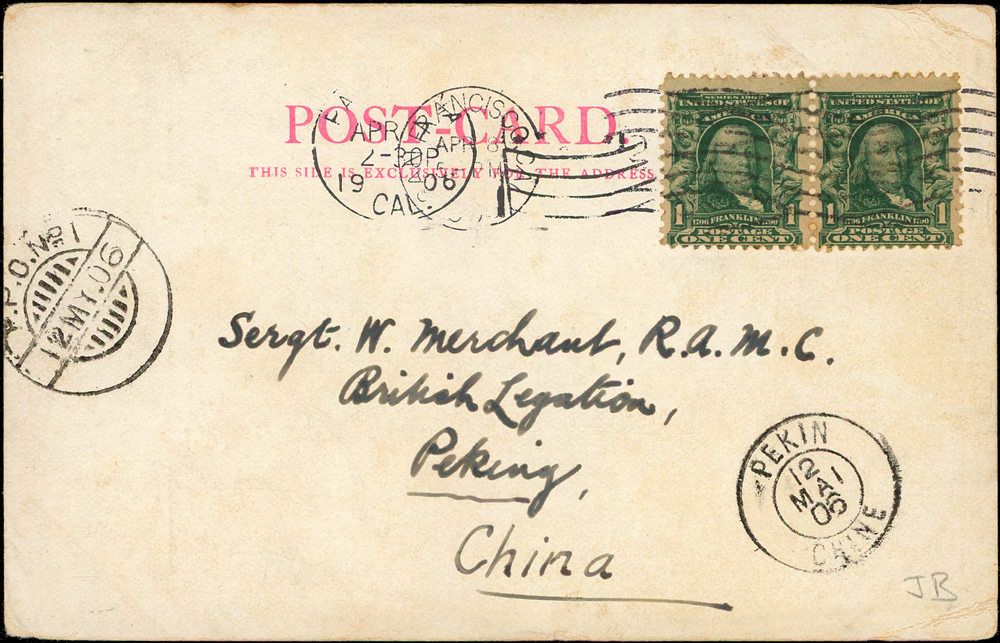 POST-CARD.
THIS SIDE IS EXCLUSIVELY FOR THE ADDRESS
APR
2-30P
19 06
CAL.
FRANCISCO, CAL.
APR 8
SERIES 1902
UNITED STATES OF
AMERICA
1 1706 FRANKLIN 1790 1
POSTAGE
ONE CENT
SERIES 1902
UNITED STATES OF
AMERICA
1 1706 FRANKLIN 1790 1
POSTAGE
ONE CENT
P.O. No 1
12 MY. 06
Sergt. W. Merchant, R.A.M.C.
British Legation,
Peking,
China
PEKIN
12
MAI
06
CHINE
JB